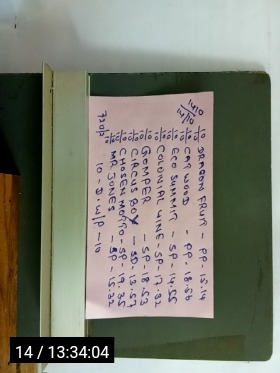 10/10 DRAGON FRUIT - PP - 15.14
10/10 CAR WOOD - PP - 18.56
10/10 ECO SUMMIT - SP - 14.55
10/10 COLONIAL WINE - SP - 17.32
10/10 GOMPER - SP - 18.53
10/10 CIRCUS BOY - SP - 13.57
10/10 CHOSEN MOTTO - SP - 19.35
10/10 MR JONES - SP - 15.32
10 - D - W/P - 10
14 / 13:34:04